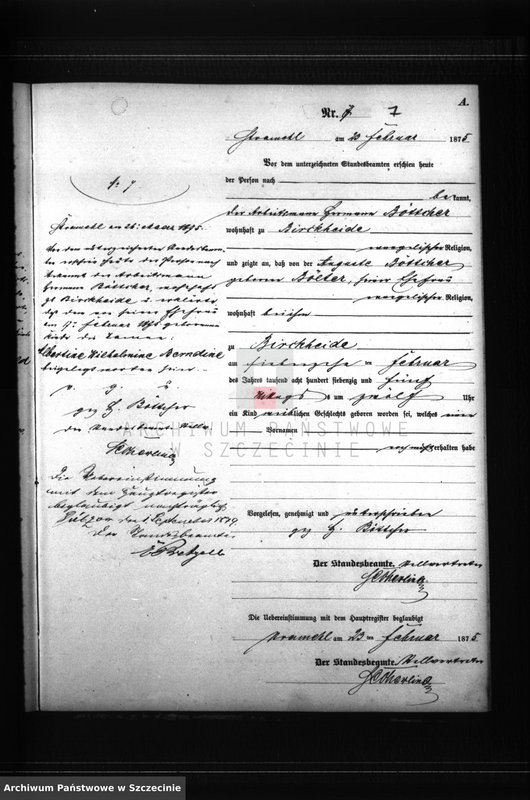 A.
Nr. 7 7
am 23 Februar 1875
Vor dem unterzeichneten Standesbeamten erschien heute
der Person nach
kannt,
der Arbeitsmann Hermann Böttcher
wohnhaft zu Birckheide
evangelischer Religion,
und zeigte an, daß von der Auguste Böttcher
geborenen seiner Ehefrau
evangelischer Religion,
wohnhaft bei ihm
zu Birckheide
am siebenzehn ten Februar
des Jahres tausend acht hundert siebenzig und fünf
Mittags um zwölf Uhr
ein Kind weiblichen Geschlechts geboren worden sei, welches
Vornamen
noch nicht erhalten habe
Vorgelesen, genehmigt und unterschrieben
gez H. Böttcher
Der Standesbeamte. Stellvertreter
Die Uebereinstimmung mit dem Hauptregister beglaubigt
am 23 ten Februar 1875
Der Standesbeamte. Stellvertreter
zu 7
1875.
Vor dem unterzeichneten Standesbeam-
ten erschien heute der Person nach
bekannt der Arbeitsmann
Hermann Böttcher, wohnhaft
zu Birckheide u. erklärte,
daß dem von seiner Ehefrau
am 17. Februar 1875 geborenen
Kinde die Namen:
Albertine Wilhelmine Bernadine
beigelegt worden seien.
v. g. u.
gez H. Böttcher
der Standesbeamte
Die Uebereinstimmung
mit dem Hauptregister
beglaubigt nachträglich
September 1879
Der Standesbeamte
ARCHIWUM PAŃSTWOWE
W SZCZECINIE
Archiwum Państwowe w Szczecinie